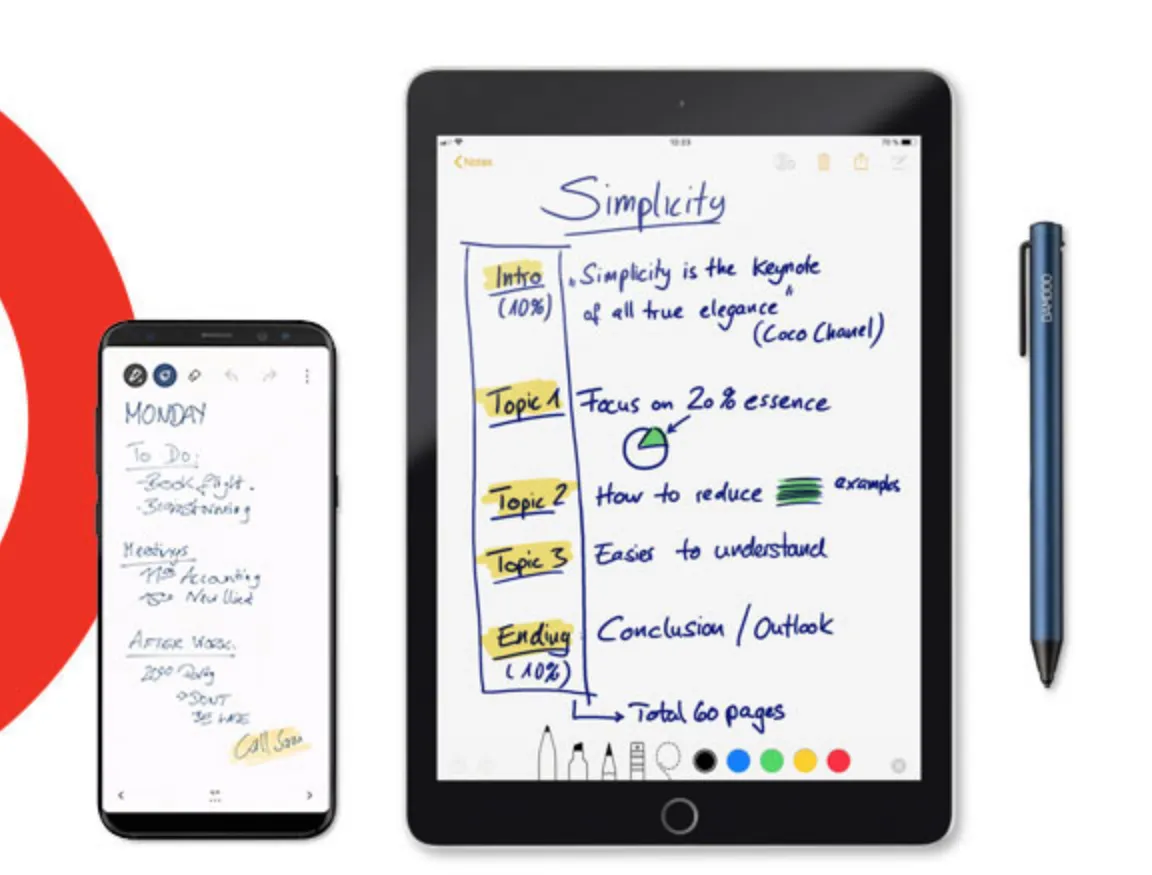 MONDAY
To Do:
- Book flight.
- Brainstorming
Meetings
Accounting
New Client
AFTER WORK.
Party
DONT
BE LATE
Call Sam
10:23
70 %
Notes
Simplicity
Intro
(10%)
„Simplicity is the keynote
of all true elegance"
(Coco Chanel)
Topic 1
Focus on 20% essence
Topic 2
How to reduce examples
Topic 3
Easier to understand
Ending
(10%)
Conclusion / Outlook
Total 60 pages
BAMBOO